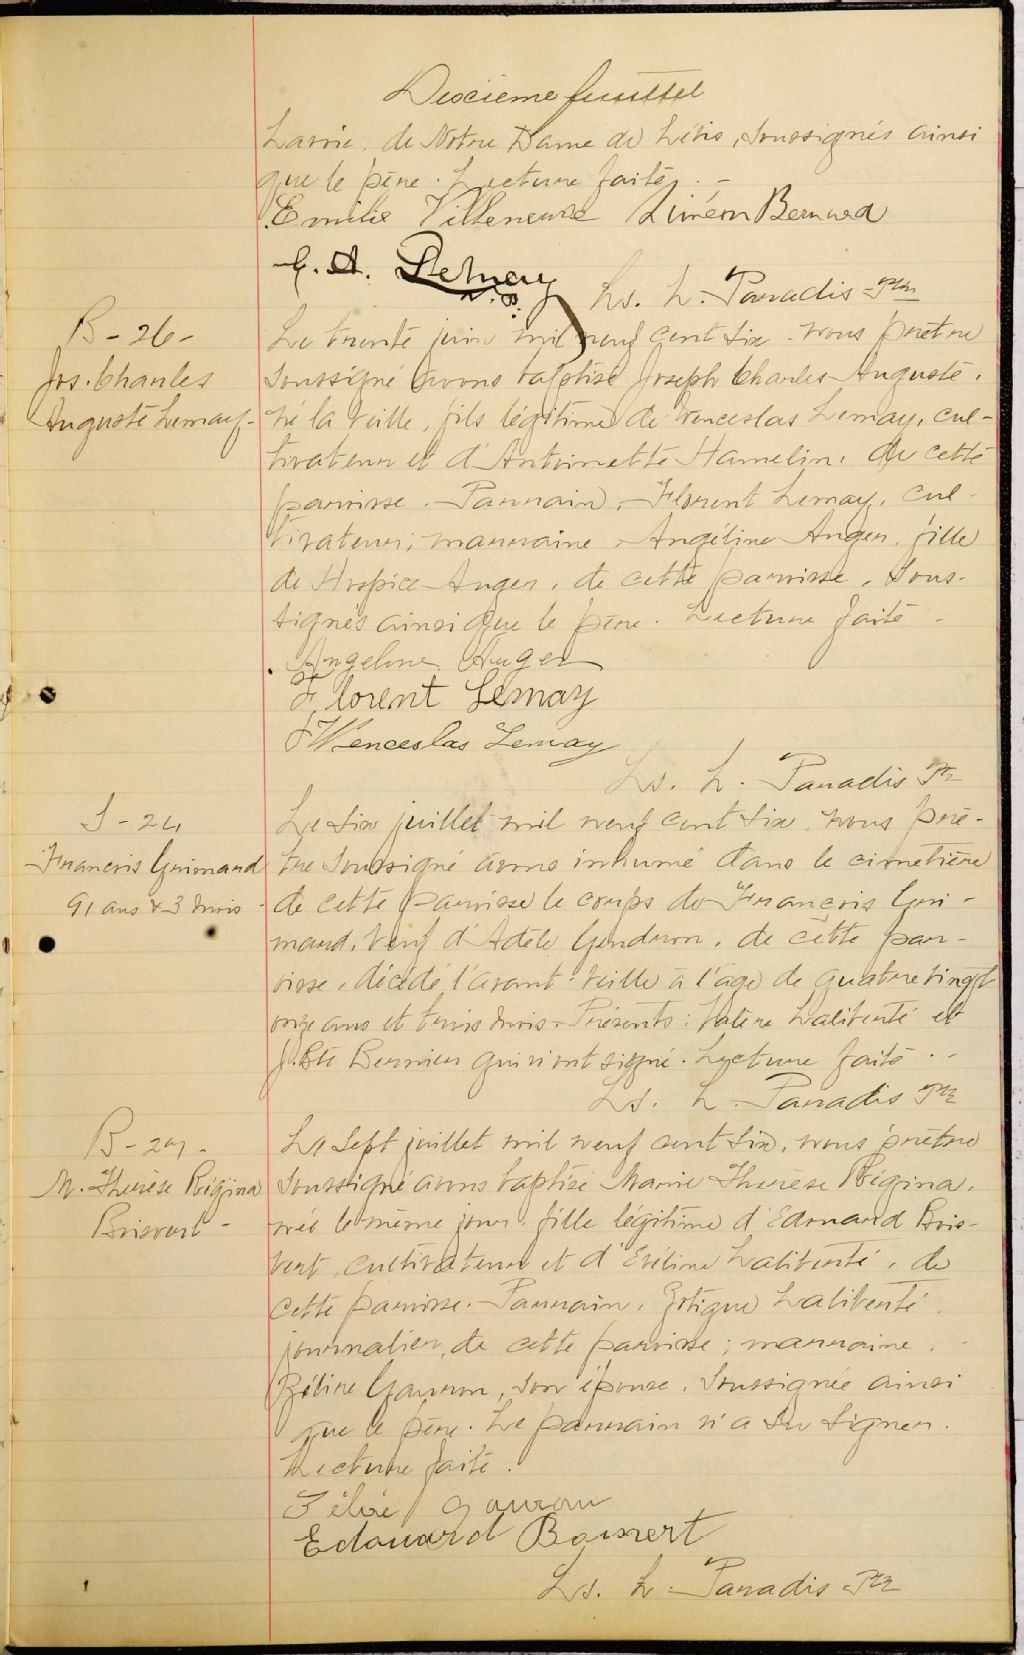 Deuxième feuillet
Lavoie, de Notre Dame de Lévis, soussignés ainsi
que le père. Lecture faite. -
Emilie Villeneuve Siméon Bernard
E. A. Lemay
N. P.
Ls. L. Paradis Ptre
B - 26 -
Jos. Charles
Auguste Lemay -
Le trente juin mil neuf cent six. nous prêtre
soussigné avons baptisé Joseph Charles Auguste,
né la veille, fils légitime de Venceslas Lemay, cul-
tivateur et d'Antoinette Hamelin, de cette
paroisse. Parrain, Florent Lemay, cul-
tivateur; marraine Angéline Auger, fille
de Hospice Auger, de cette paroisse, sous-
signés ainsi que le père. Lecture faite -
Angeline Auger
Florent Lemay
Wenceslas Lemay
Ls. L. Paradis Ptr
S - 24
François Guimond
91 ans & 3 mois -
Le six juillet mil neuf cent six, nous prê-
tre soussigné avons inhumé dans le cimetière
de cette paroisse le corps de François Gui-
mond, veuf d'Adèle Gendron, de cette par-
oisse, décédé l'avant-veille à l'âge de quatre vingt
onze ans et trois mois. Présents: Valère Laliberté et
J. Bte Bernier qui n'ont signé. Lecture faite. -
Ls. L. Paradis Ptr
B - 27 -
M. Thérèse Régina
Boisvert -
Le sept juillet mil neuf cent six, nous prêtre
soussigné avons baptisé Marie Thérèse Régina,
née le même jour, fille légitime d'Edouard Bois-
vert, cultivateur et d'Evéline Laliberté, de
cette paroisse. Parrain, Zotique Laliberté
journalier, de cette paroisse; marraine, -
Zélire Gauron, son épouse, soussignée ainsi
que le père. Le parrain n'a su signer.
Lecture faite.
Zélire Gauron
Edouard Boisvert
Ls. L. Paradis Ptr